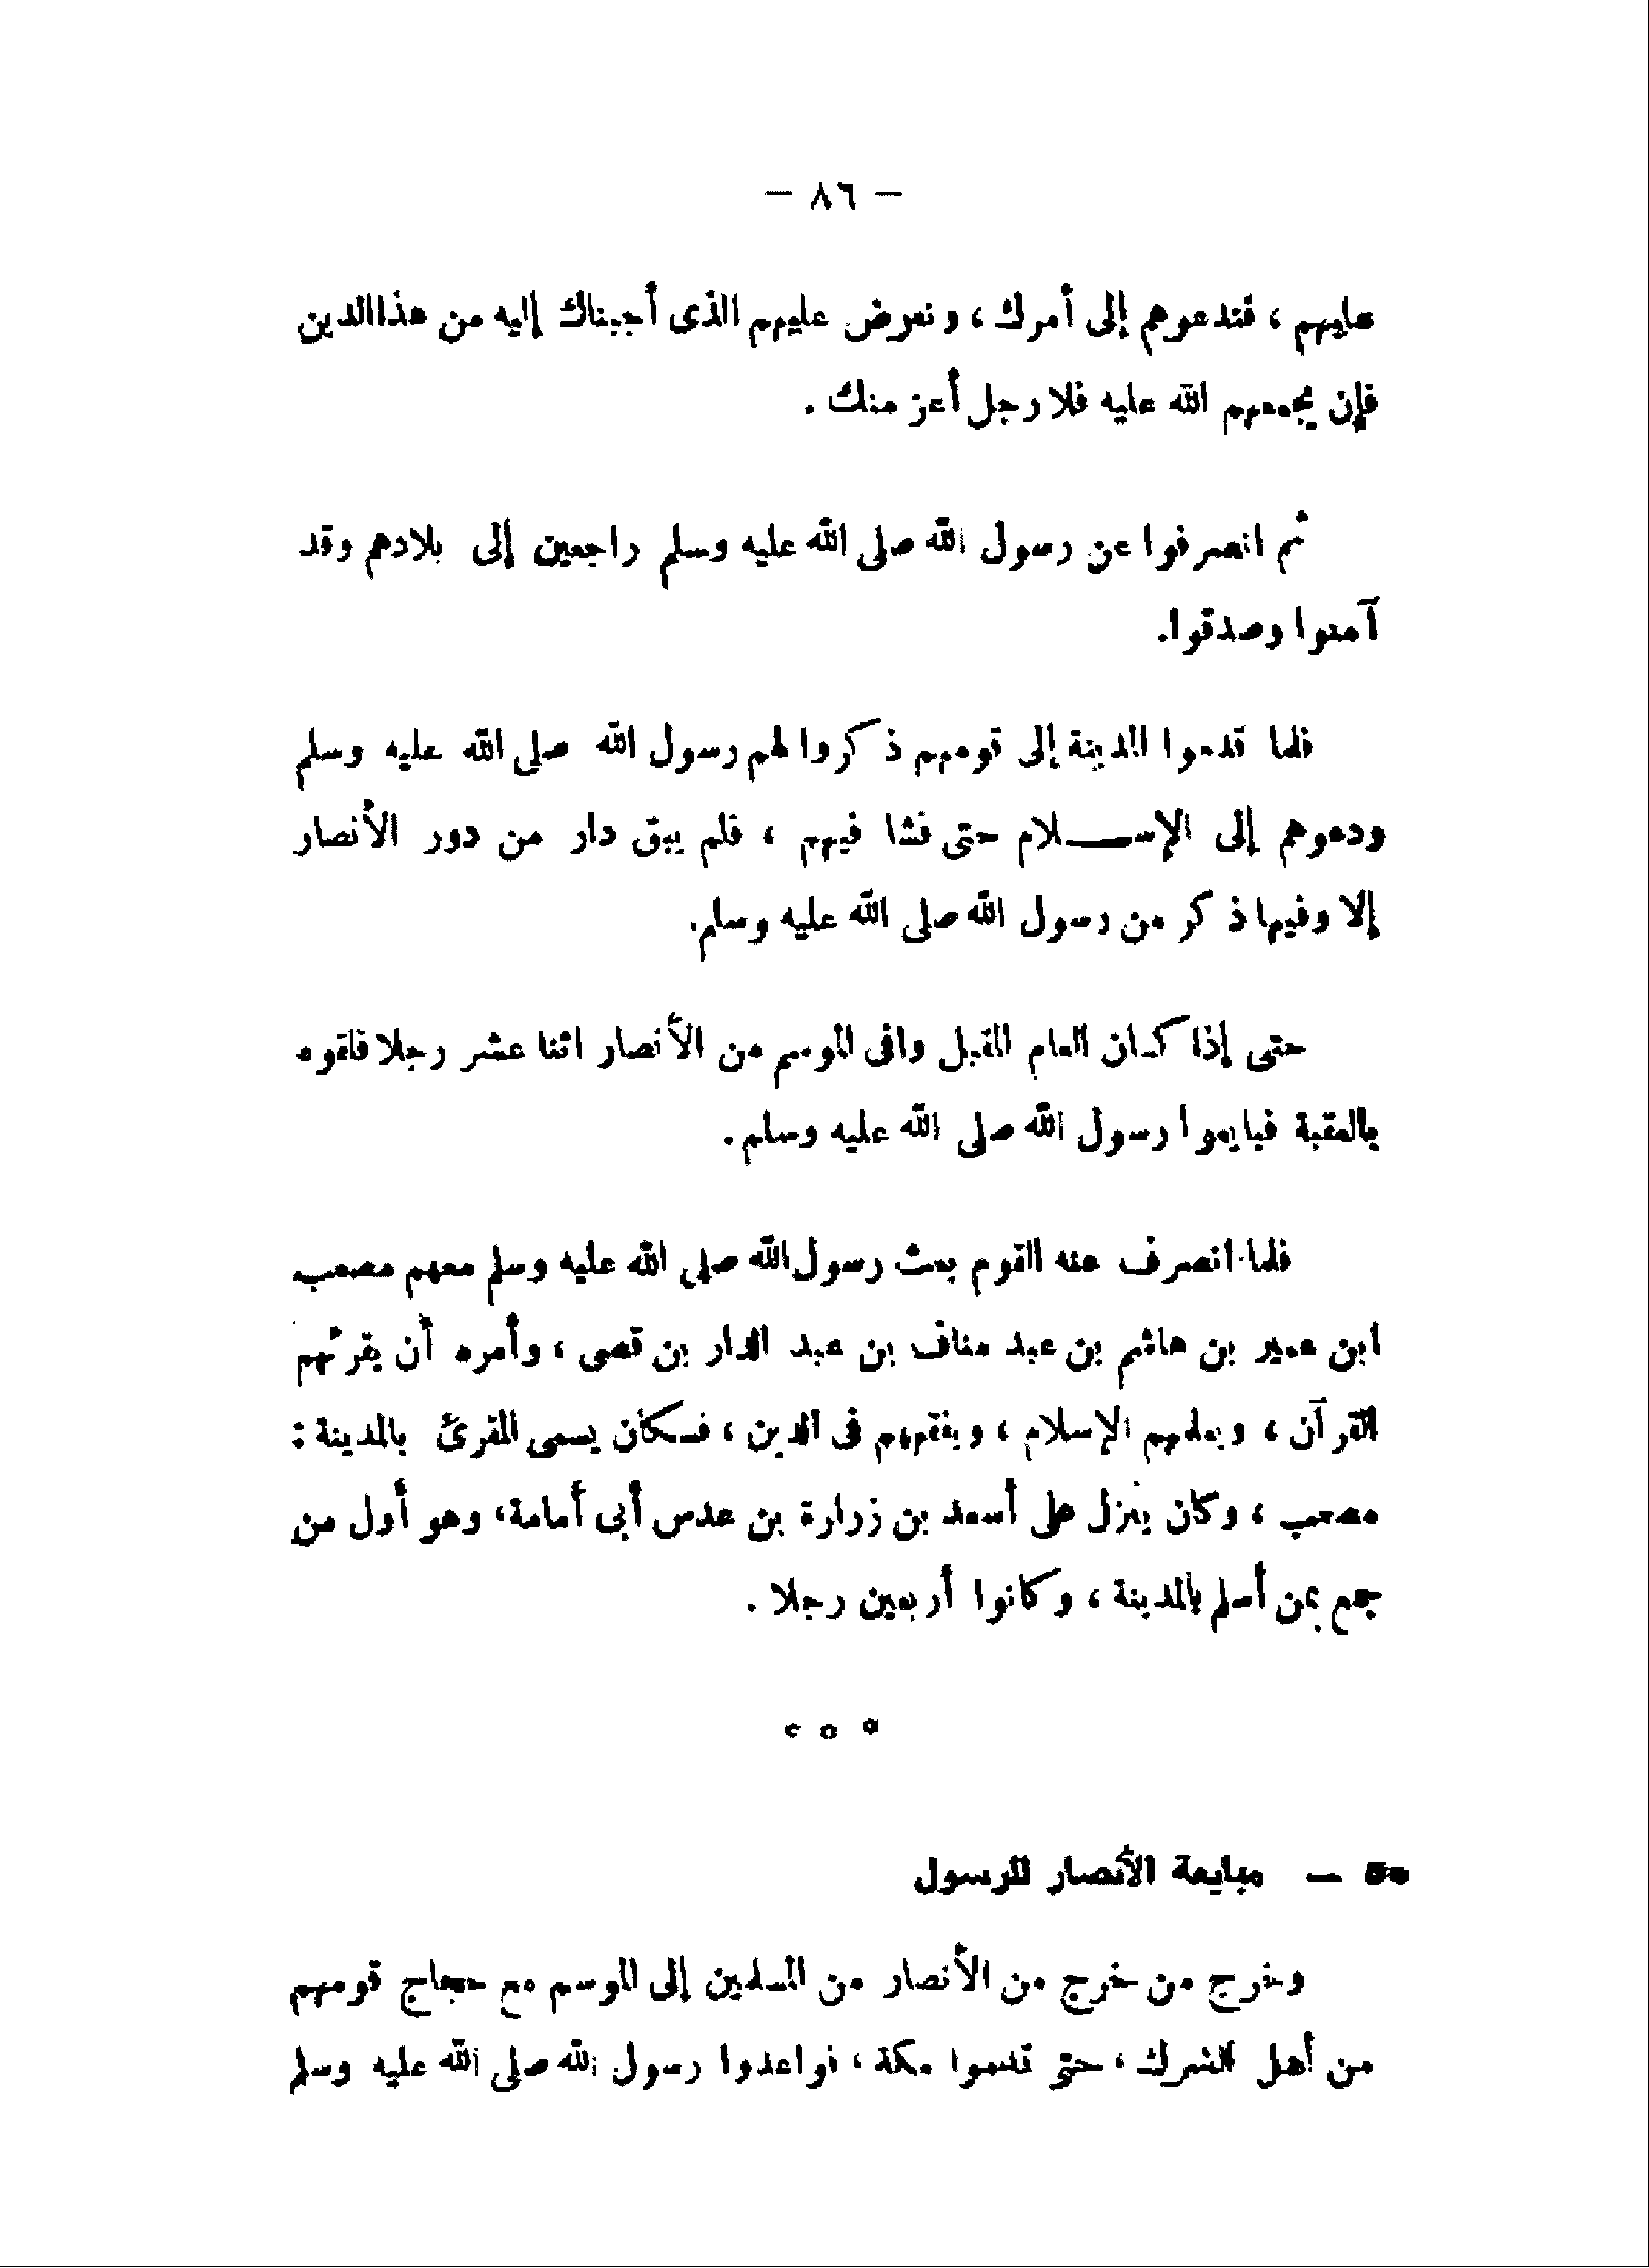 — ٨٦ —
عليهم ، فتدعوهم إلى أمرك ، ونعرض عليهم الذى أجبناك إليه من هذا الدين
فإن يجمعهم الله عليه فلا رجل أعز منك .
ثم انصرفوا عن رسول الله صلى الله عليه وسلم راجعين إلى بلادهم وقد
آمنوا وصدقوا.
فلما قدموا المدينة إلى قومهم ذكروا لهم رسول الله صلى الله عليه وسلم
ودعوهم إلى الإســـلام حتى فشا فيهم ، فلم يبق دار من دور الأنصار
إلا وفيها ذكر من رسول الله صلى الله عليه وسلم.
حتى إذا كان العام المقبل وافى الموسم من الأنصار اثنا عشر رجلا فلقوه
بالعقبة فبايعوا رسول الله صلى الله عليه وسلم.
فلما انصرف عنه القوم بعث رسول الله صلى الله عليه وسلم معهم مصعب
ابن عمير بن هاشم بن عبد مناف بن عبد الدار بن قصى ، وأمره أن يقرئهم
القرآن ، ويعلمهم الإسلام ، ويفقههم فى الدين ، فكان يسمى المقرئ بالمدينة :
مصعب ، وكان ينزل على أسعد بن زرارة بن عدس أبى أمامة، وهو أول من
جمع بمن أسلم بالمدينة ، وكانوا أربعين رجلا .
° ° °
٥٠ — مبايعة الأنصار للرسول
وخرج من خرج من الأنصار من المسلمين إلى الموسم مع حجاج قومهم
من أهل الشرك ، حتى قدموا مكة ، فواعدوا رسول الله صلى الله عليه وسلم